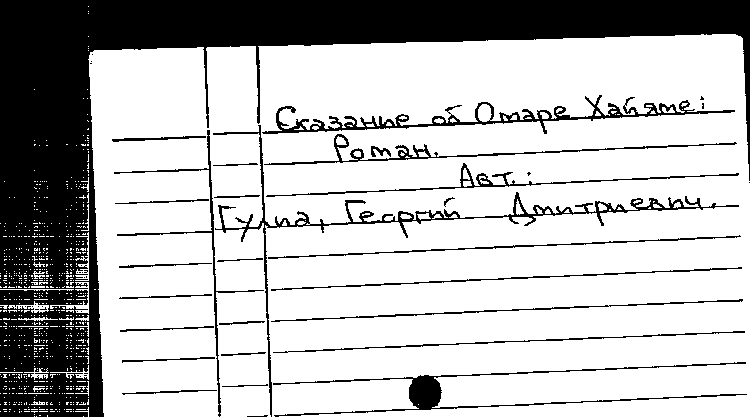 Сказание об Омаре Хайяме:
Роман.
Авт.:
Гулиа, Георгий Дмитриевич.